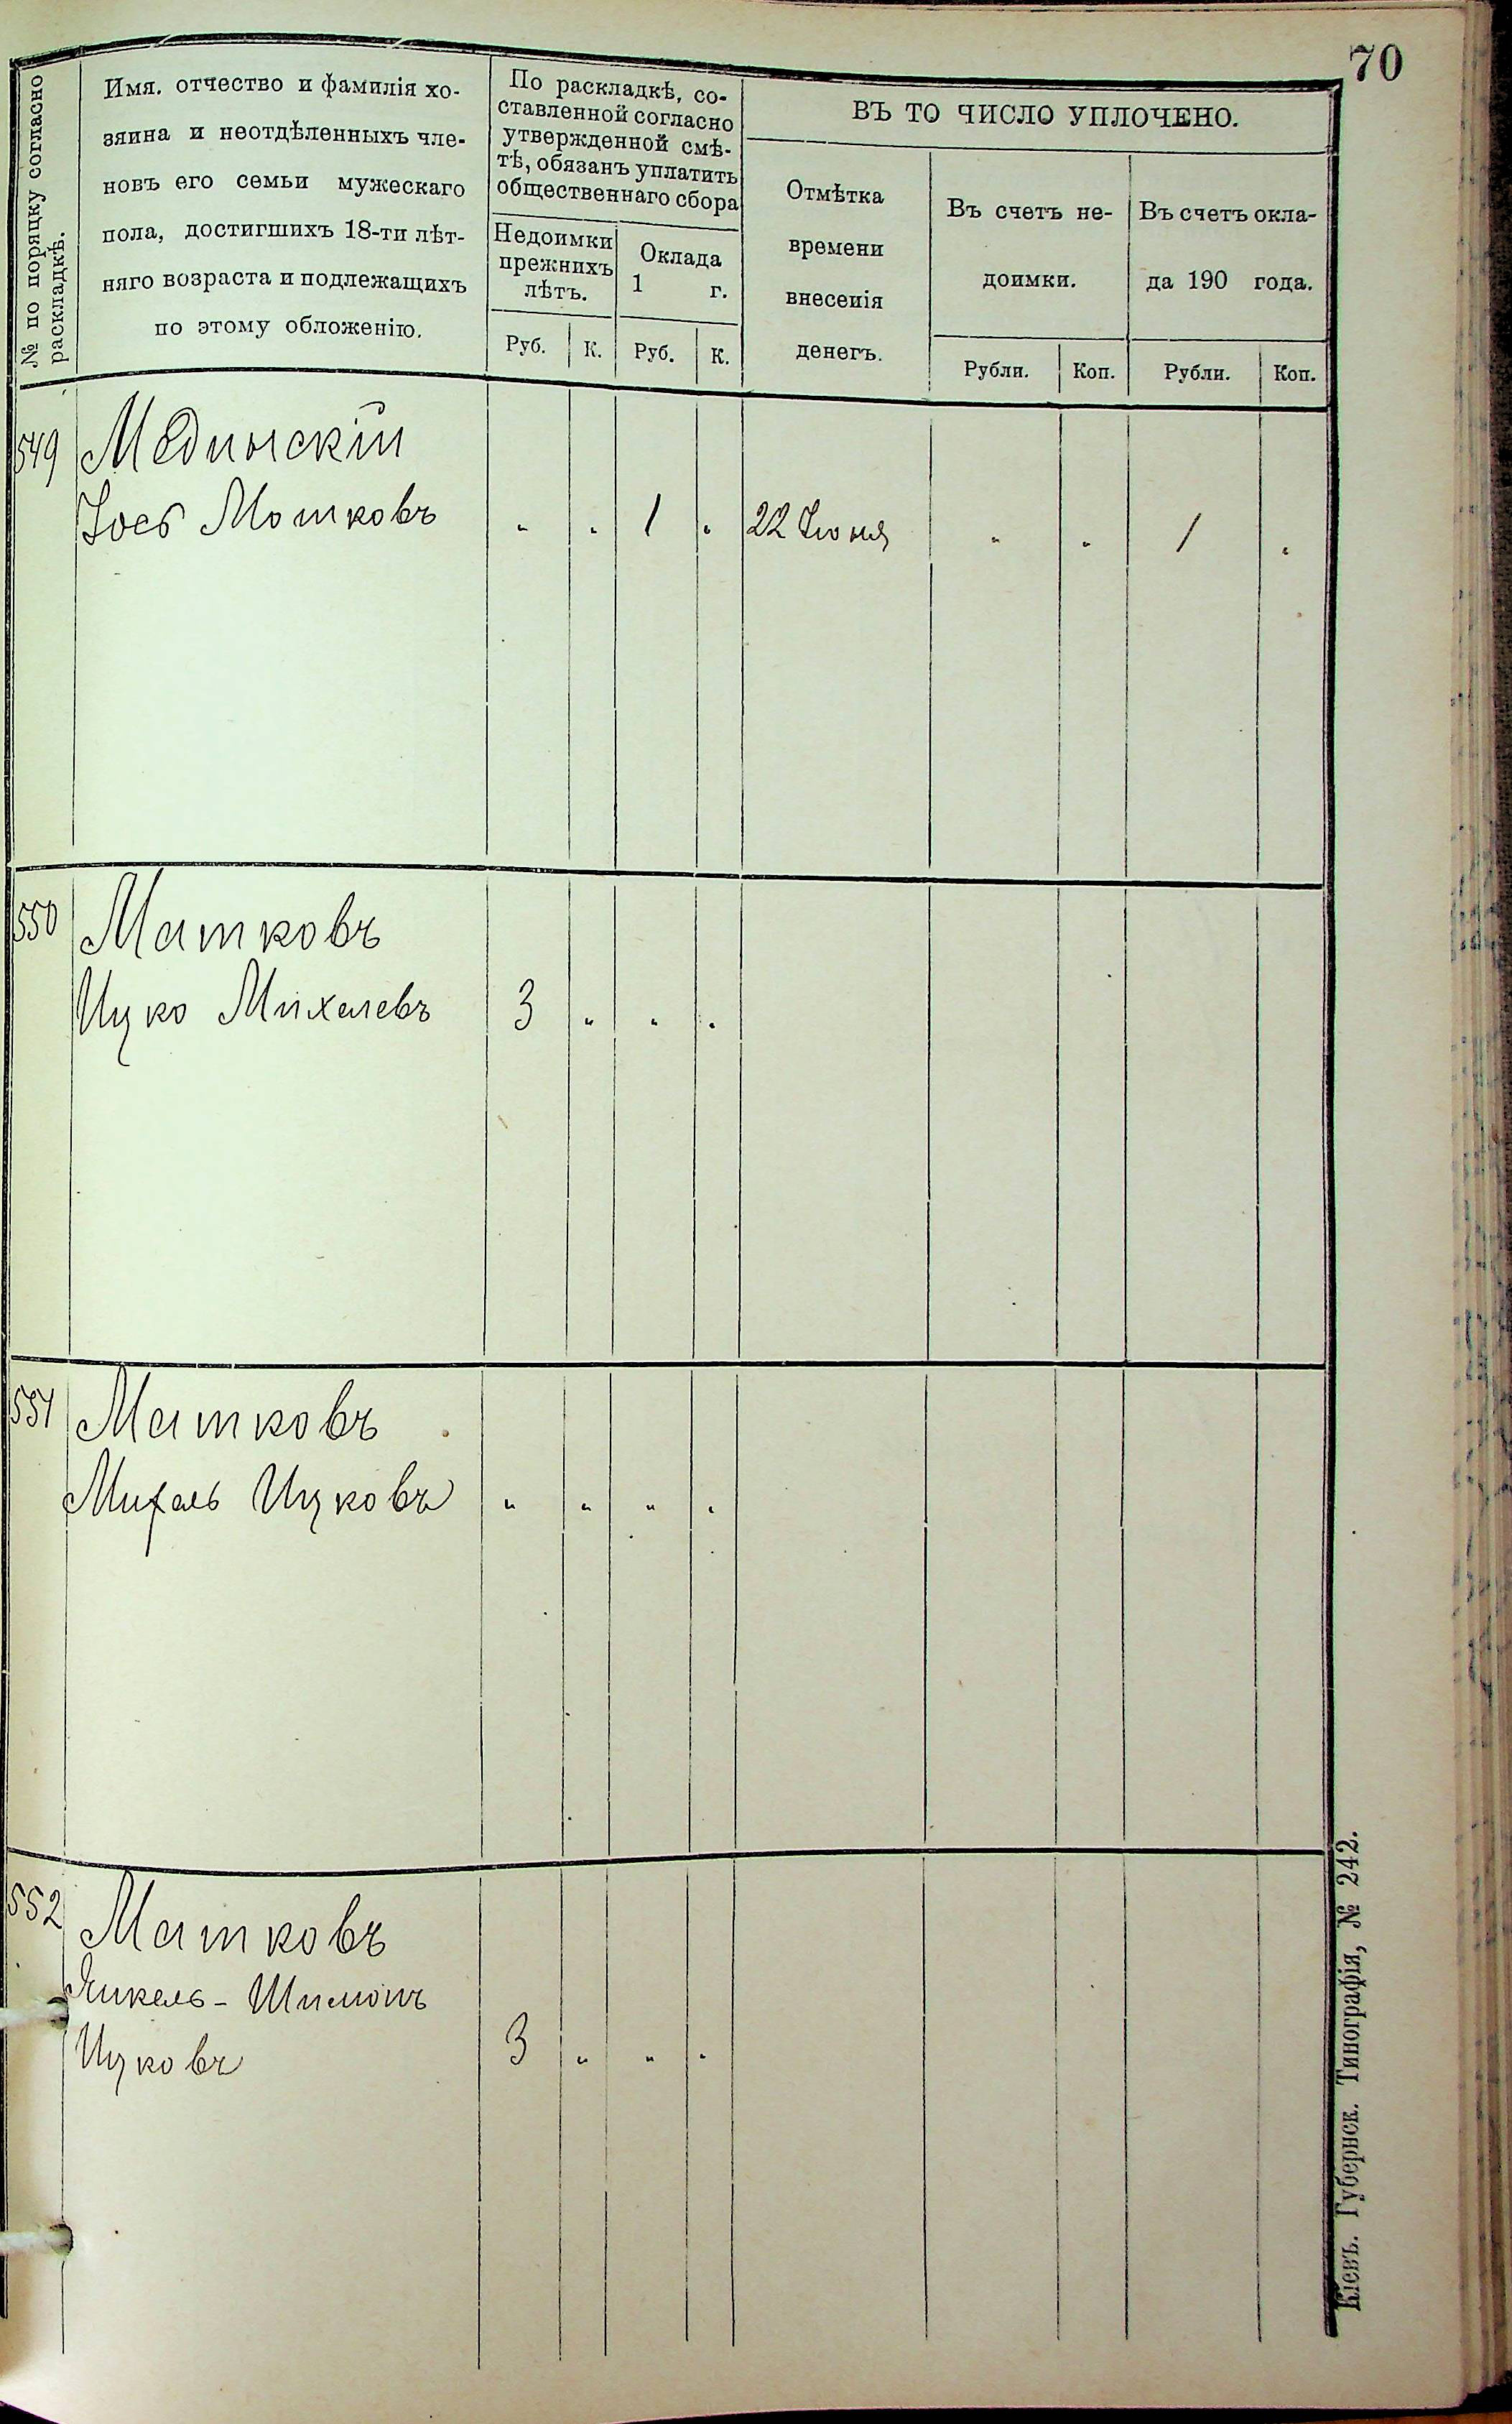 70
№ по порядку согласно
раскладкѣ.
Имя. отчество и фамилія хо-
зяина и неотдѣленныхъ чле-
новъ его семьи мужескаго
пола, достигшихъ 18-ти лѣт-
няго возраста и подлежащихъ
по этому обложенію.
По раскладкѣ, со-
ставленной согласно
утвержденной смѣ-
тѣ, обязанъ уплатить
общественнаго сбора
Недоимки
прежнихъ
лѣтъ.
Оклада
1 г.
Руб. К. Руб. К.
ВЪ ТО ЧИСЛО УПЛОЧЕНО.
Отмѣтка
времени
внесенія
денегъ.
Въ счетъ не-
доимки.
Въ счетъ окла-
да 190 года.
Рубли. Коп. Рубли. Коп.
549 Мединскій
Іось Мошковъ " " 1 " 22 Іюня " " 1 "
550 Матковъ
Ицко Михелевъ 3 " " "
551 Матковъ
Михель Ицковъ " " " "
552 Матковъ
Янкель-Шимонъ
Ицковъ 3 " " "
Кіевъ. Губернск. Типографія, № 242.